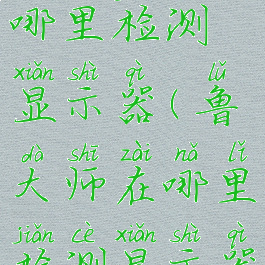 哪里检测
xiǎn shì qì lǔ
显示器(鲁
dà shī zài nǎ lǐ
大师在哪里
jiǎn cè xiǎn shì qì
检测显示器